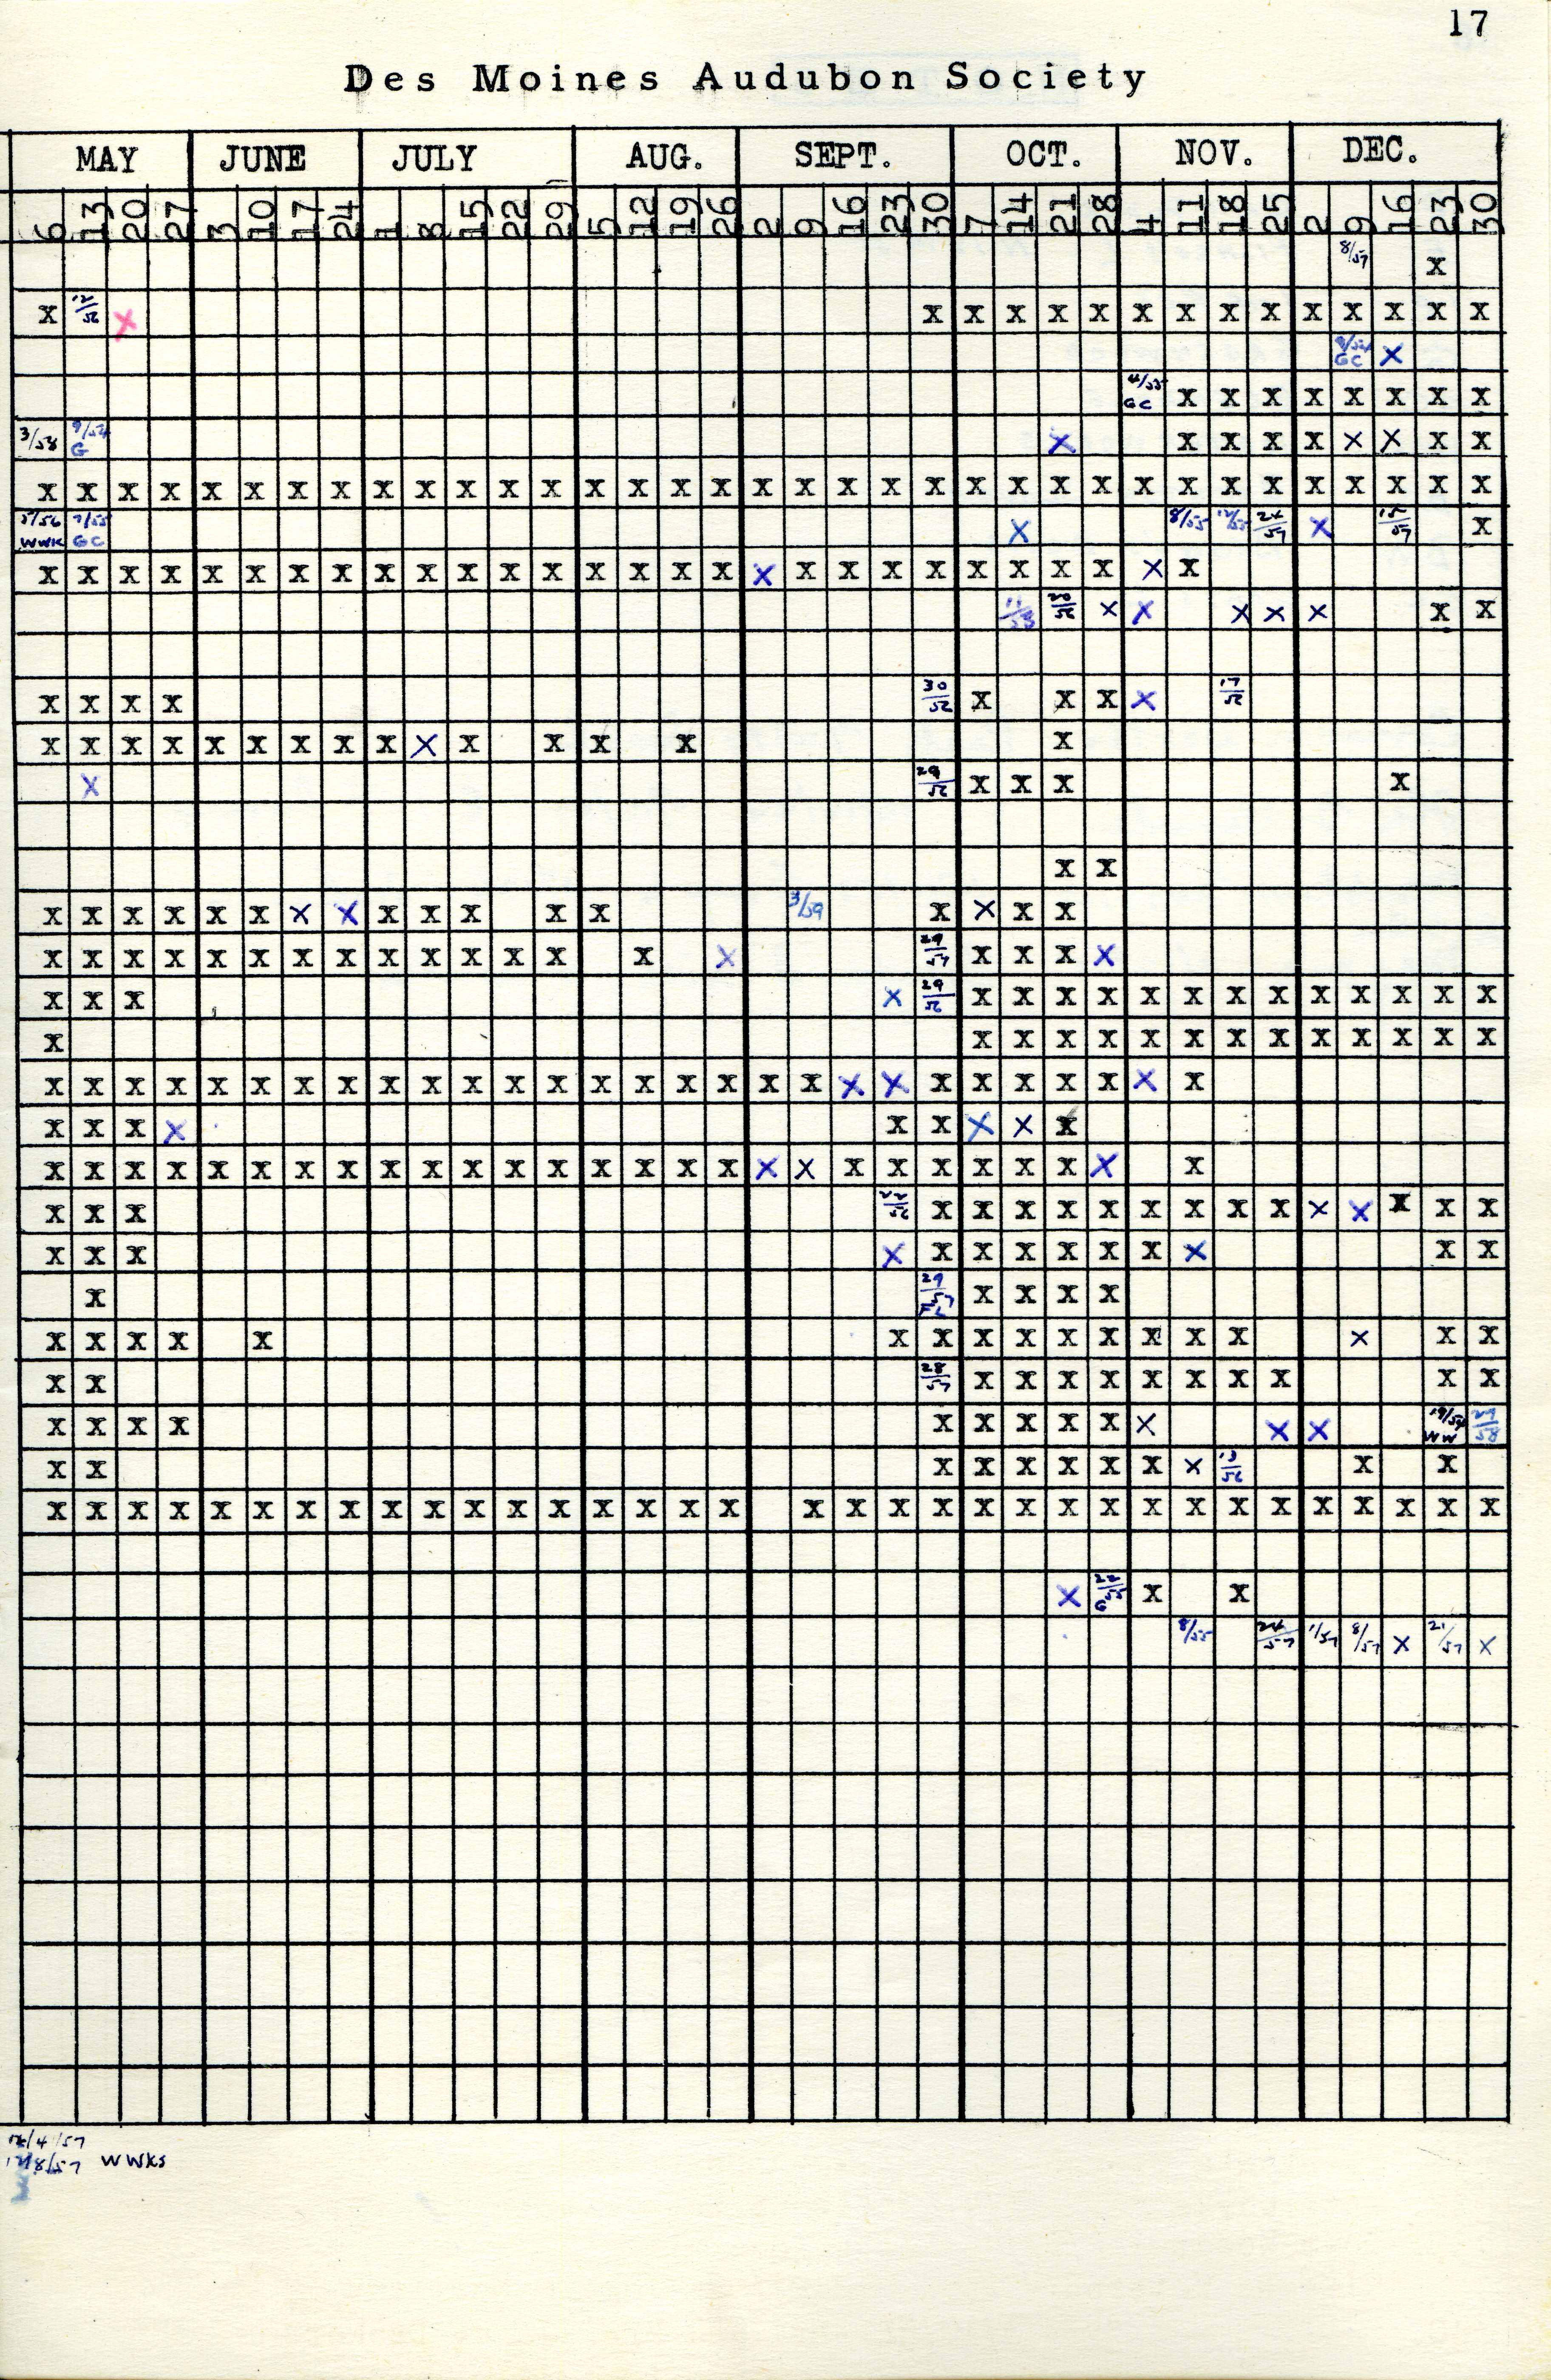 17
Des Moines Audubon Society
MAY JUNE JULY AUG. SEPT. OCT. NOV. DEC.
6 13 20 27 3 10 17 24 1 8 15 22 29 5 12 19 26 2 9 16 23 30 7 14 21 28 4 11 18 25 2 9 16 23 30
8/57 X
X 12/56 X X X X X X X X X X X X X X X
GC X
4/55 GC X X X X X X X X
3/58 9/54 G X X X X X X X X X
X X X X X X X X X X X X X X X X X X X X X X X X X X X X X X X X X X X
5/56 WWK 7/55 GC X 8/55 12/55 24/57 X 15/57 X
X X X X X X X X X X X X X X X X X X X X X X X X X X X X
11/53 20/56 X X X X X X X
X X X X 30/56 X X X X 17/56
X X X X X X X X X X X X X X X
X 29/56 X X X X
X X
X X X X X X X X X X X X X 3/59 X X X X
X X X X X X X X X X X X X X X 29/57 X X X X
X X X X 29/56 X X X X X X X X X X X X X
X X X X X X X X X X X X X X
X X X X X X X X X X X X X X X X X X X X X X X X X X X X
X X X X X X X X X
X X X X X X X X X X X X X X X X X X X X X X X X X X X
X X X 22/56 X X X X X X X X X X X X X X
X X X X X X X X X X X X X
X 29/57 FL X X X X
X X X X X X X X X X X X X X X X X X
X X 28/57 X X X X X X X X X X
X X X X X X X X X X X X 19/54 WW 29/58
X X X X X X X X X 13/56 X X
X X X X X X X X X X X X X X X X X X X X X X X X X X X X X X X X X X
X 22/55 G X X
8/55 24/57 1/57 8/57 X 21/57 X
12/4/57
12/8/57 WWKS